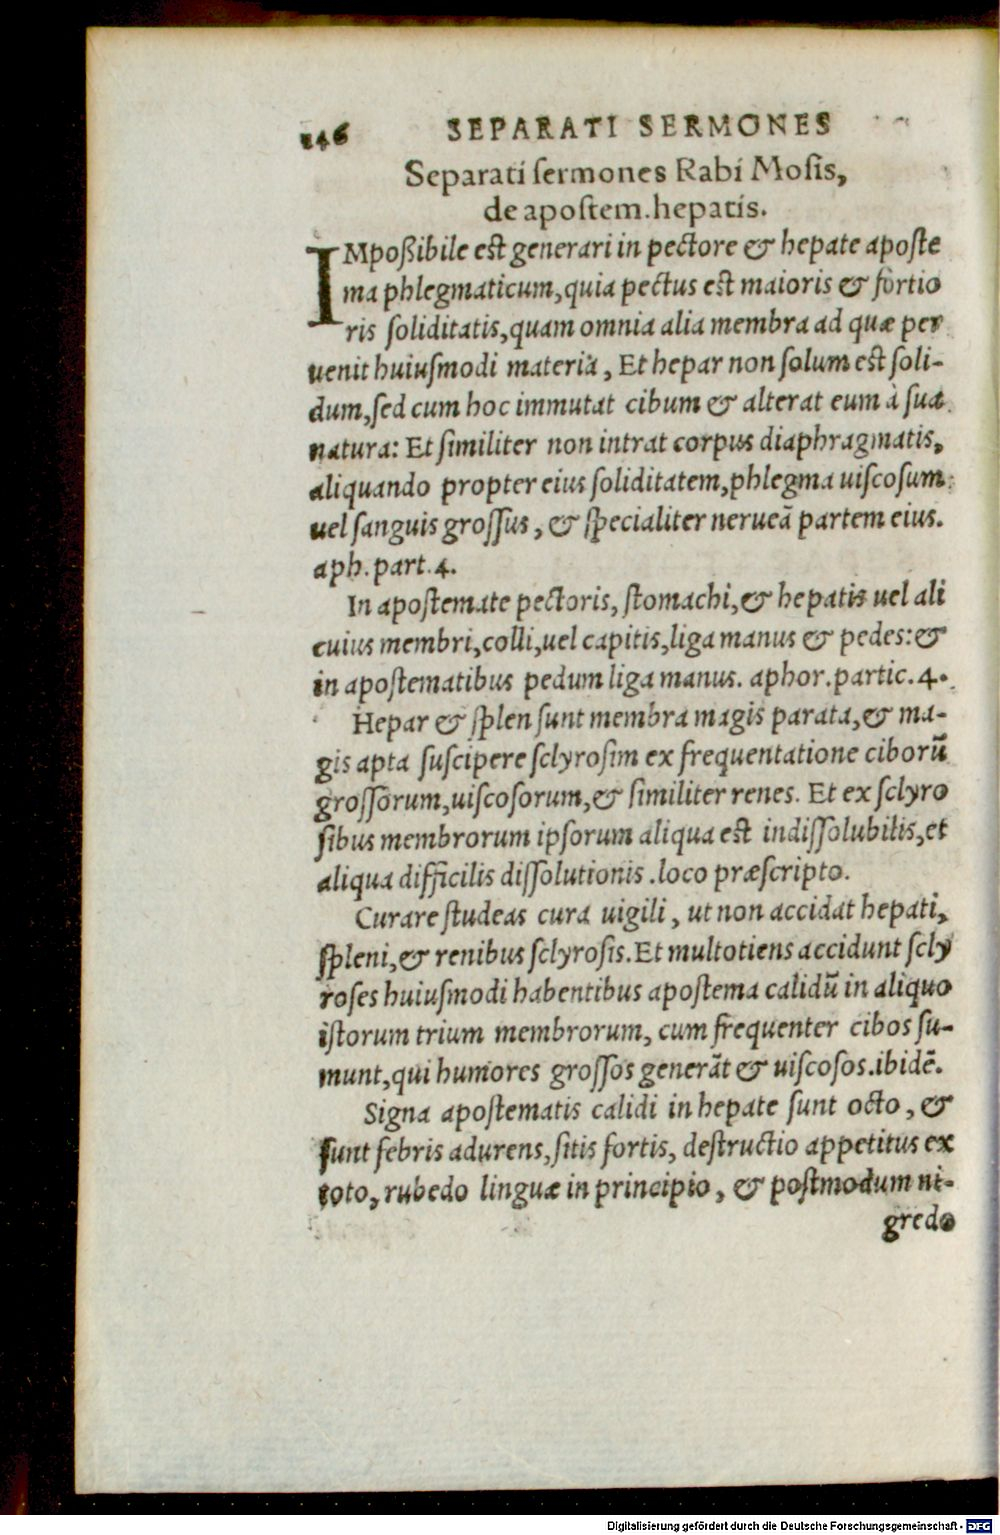 146 SEPARATI SERMONES
Separati sermones Rabi Mosis,
de apostem.hepatis.
IMpoßibile est generari in pectore & hepate aposte
ma phlegmaticum,quia pectus est maioris & fortio
ris soliditatis,quam omnia alia membra ad quæ per
uenit huiusmodi materia, Et hepar non solum est soli-
dum,sed cum hoc immutat cibum & alterat eum à sua
natura: Et similiter non intrat corpus diaphragmatis,
aliquando propter eius soliditatem,phlegma uiscosum
uel sanguis grossus, & specialiter nerueã partem eius.
aph.part.4.
In apostemate pectoris, stomachi,& hepatis uel ali
cuius membri,colli,uel capitis,liga manus & pedes:&
in apostematibus pedum liga manus. aphor.partic.4.
Hepar & splen sunt membra magis parata,& ma-
gis apta suscipere sclyrosim ex frequentatione ciborũ
grossorum,uiscosorum,& similiter renes. Et ex sclyro
sibus membrorum ipsorum aliqua est indissolubilis,et
aliqua difficilis dissolutionis.loco præscripto.
Curare studeas cura uigili, ut non accidat hepati,
spleni,& renibus sclyrosis.Et multotiens accidunt scly
roses huiusmodi habentibus apostema calidũ in aliquo
istorum trium membrorum, cum frequenter cibos su-
munt,qui humores grossos generãt & uiscosos.ibidẽ.
Signa apostematis calidi in hepate sunt octo, &
sunt febris adurens,sitis fortis, destructio appetitus ex
toto, rubedo linguæ in principio, & postmodum ni-
gredo
Digitalisierung gefördert durch die Deutsche Forschungsgemeinschaft - DFG